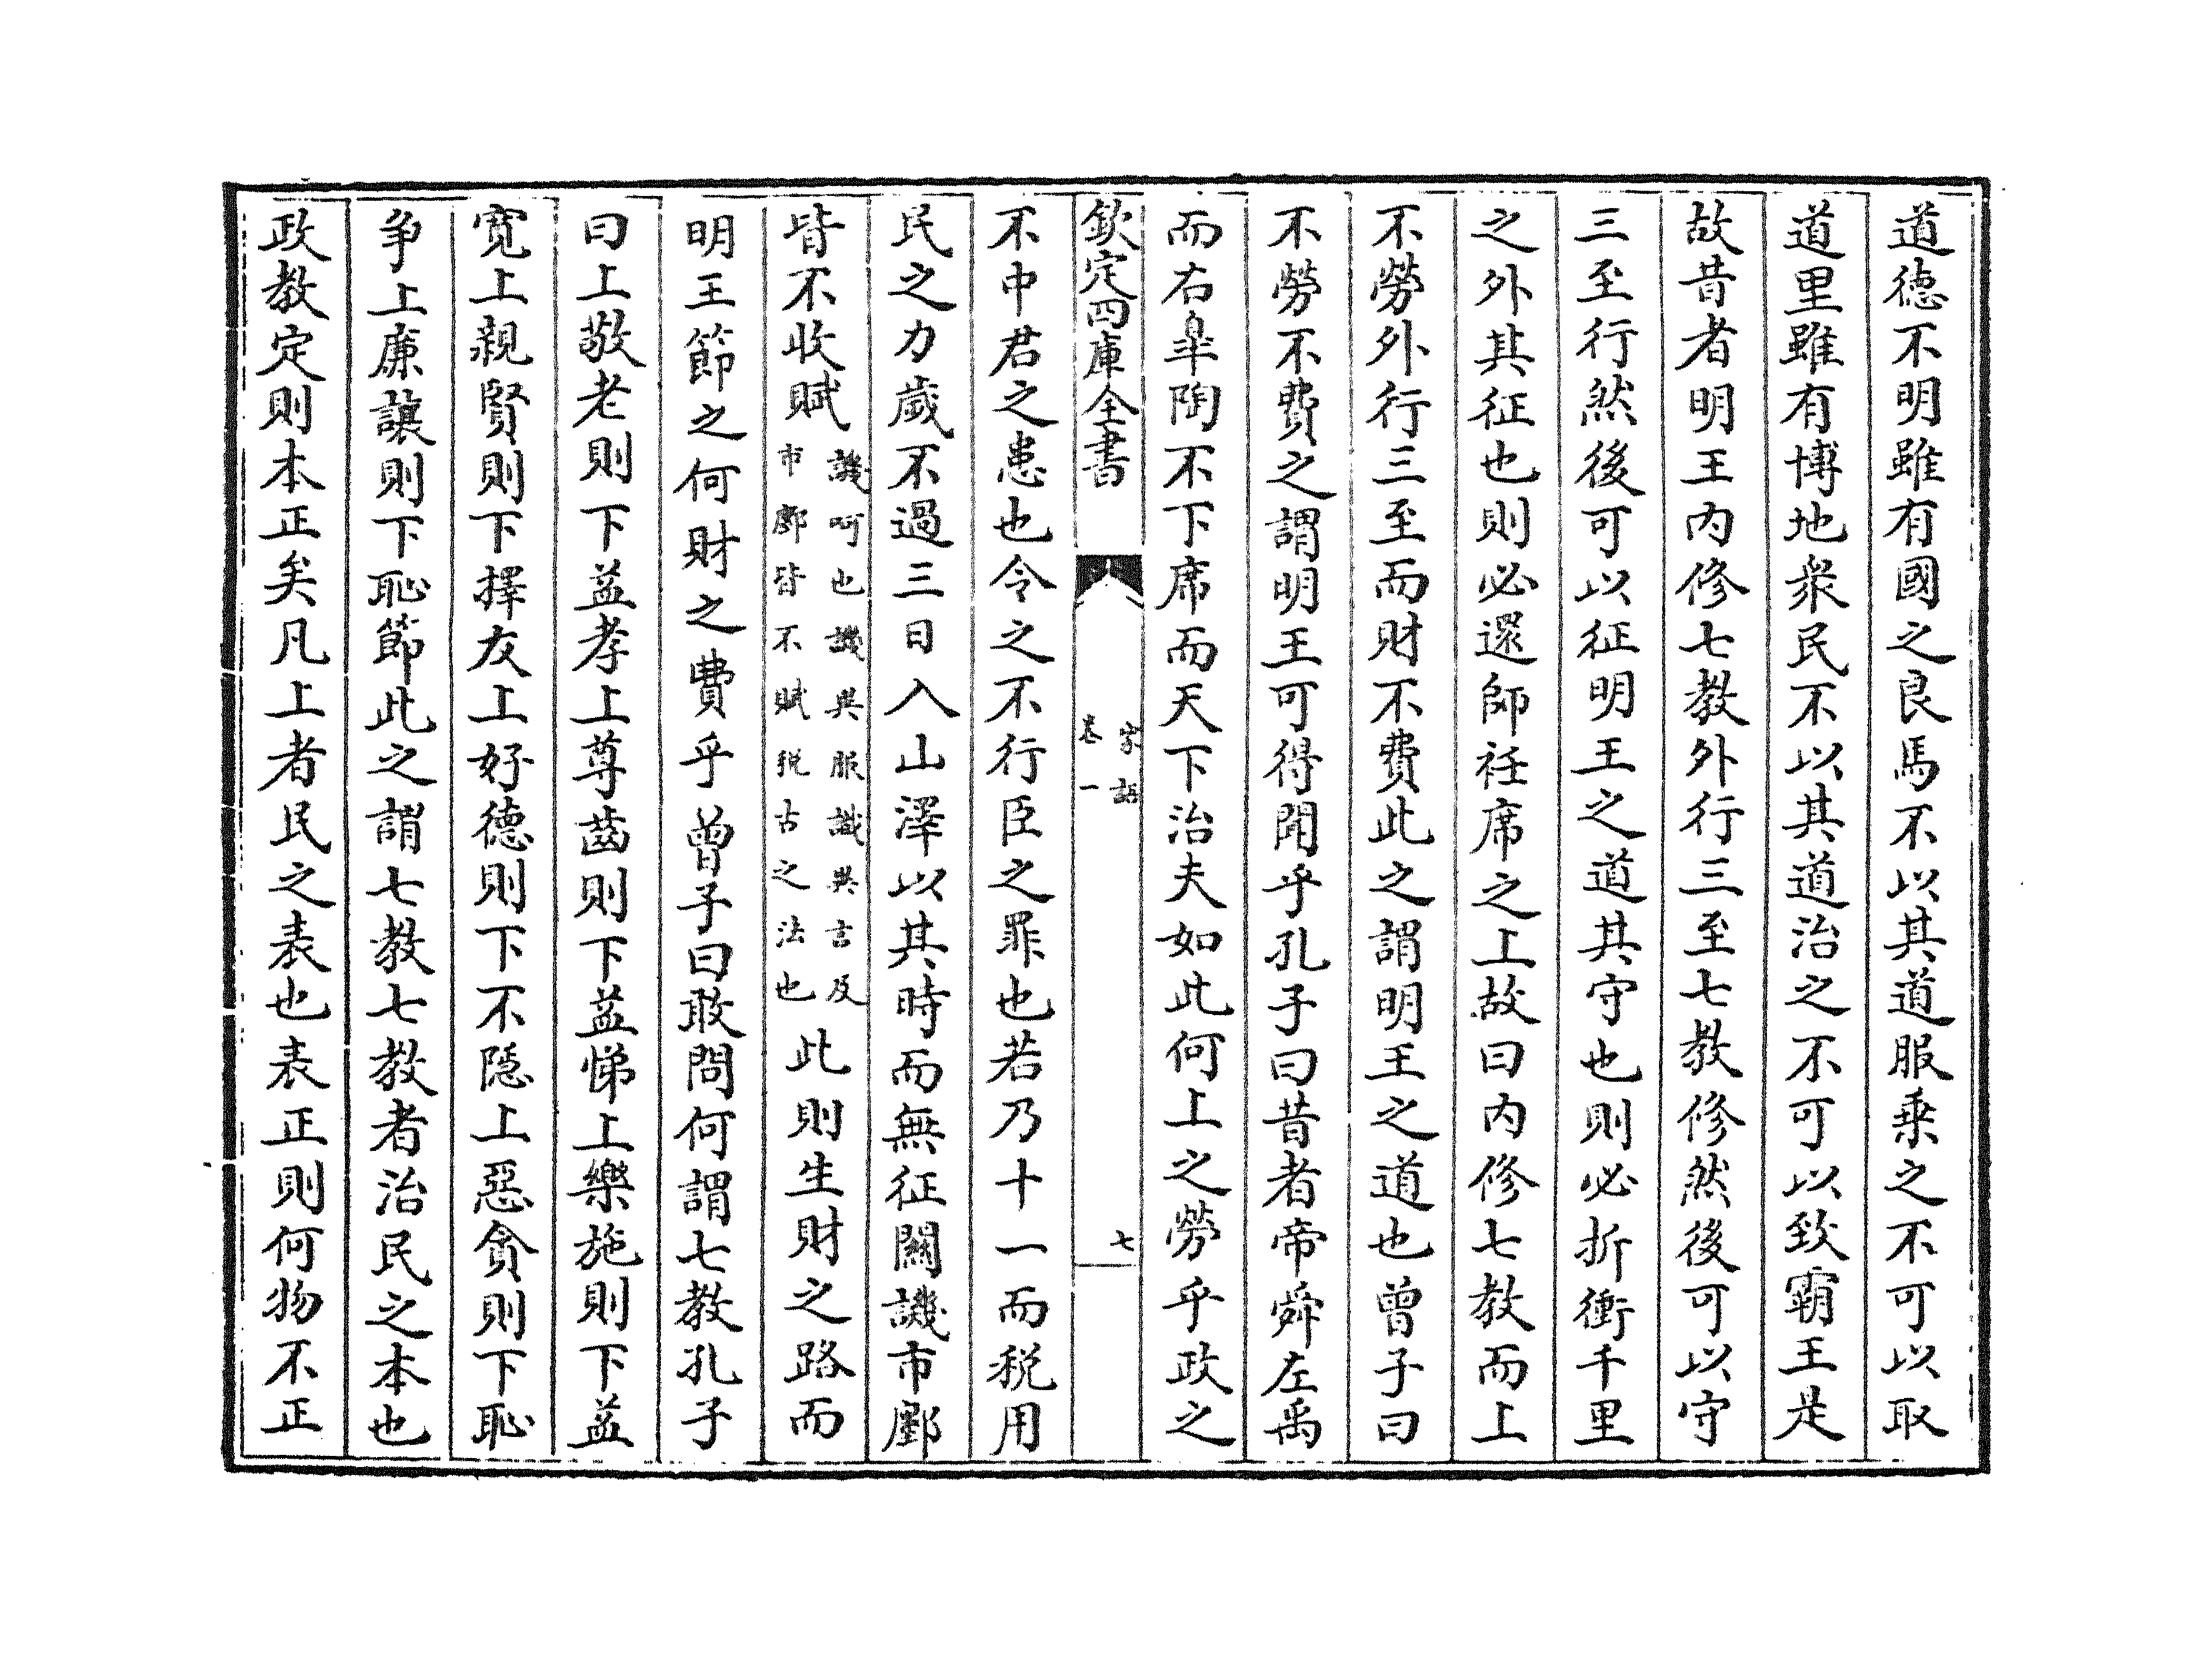 道德不明雖有國之良馬不以其道服乗之不可以取
道里雖有博地衆民不以其道治之不可以致霸王是
故昔者明王内修七教外行三至七教修然後可以守
三至行然後可以征明王之道其守也則必折衝千里
之外其征也則必還師衽席之上故曰内修七教而上
不勞外行三至而財不費此之謂明王之道也曾子曰
不勞不費之謂明王可得聞乎孔子曰昔者帝舜左禹
而右臯陶不下席而天下治夫如此何上之勞乎政之
欽定四庫全書
家語
卷一
七
不中君之患也令之不行臣之罪也若乃十一而税用
民之力歲不過三日入山澤以其時而無征關譏市鄽
皆不收賦
譏呵也譏異服識異言及
市鄽皆不賦税古之法也
此則生財之路而
明王節之何財之費乎曾子曰敢問何謂七教孔子
曰上敬老則下益孝上尊齒則下益悌上樂施則下益
寛上親賢則下擇友上好德則下不隱上惡貪則下恥
爭上廉讓則下恥節此之謂七教七教者治民之本也
政教定則本正矣凡上者民之表也表正則何物不正